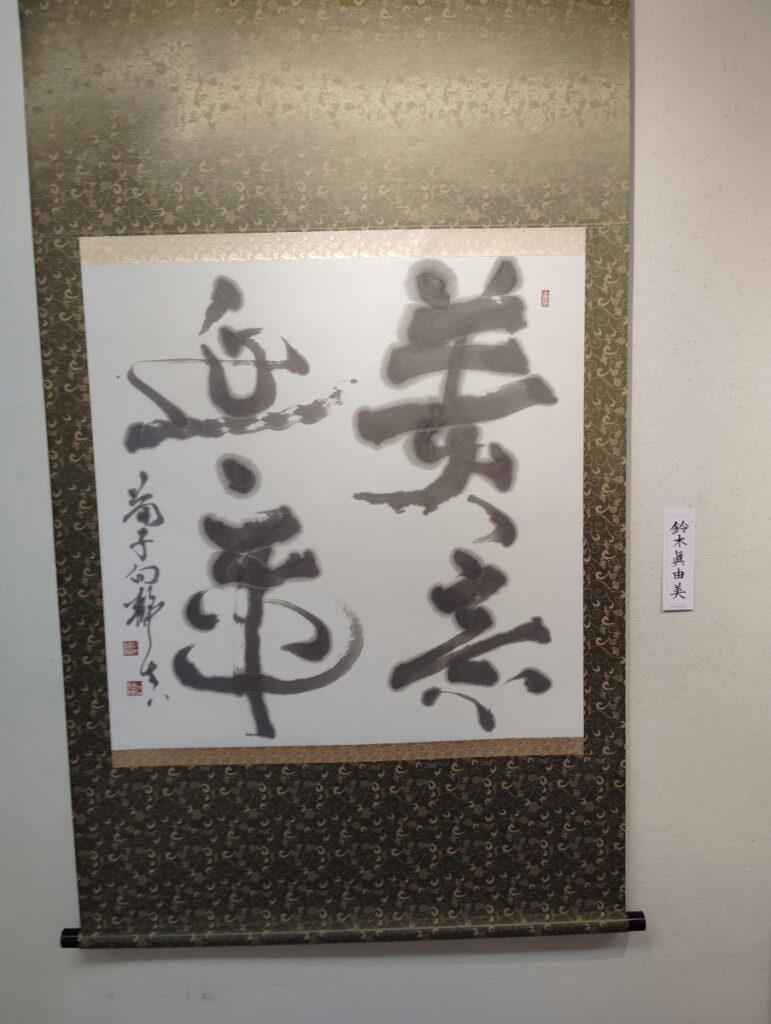 美意
延年
荀子句静
鈴木眞由美